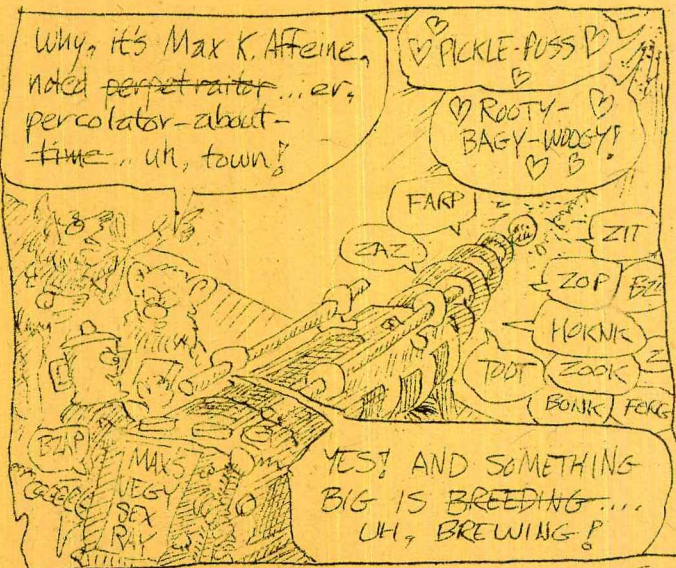 Why, it's Max K. Affeine,
noted perpetraitor...er,
percolator-about-
time.. uh, town!
PICKLE-PUSS
ROOTY-
BAGY-WOOGY!
FARP
ZAZ
ZIT
ZOP
HOKNK
TOOT
ZOOK
BONK
FERG
BZAP
MAX'S
VEGY
SEX
RAY
YES! AND SOMETHING
BIG IS BREEDING....
UH, BREWING!